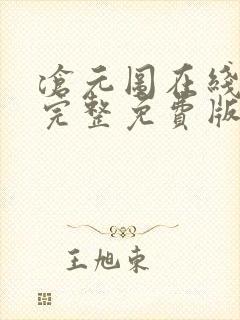 滄元圖在綫
完整免費版
王旭東